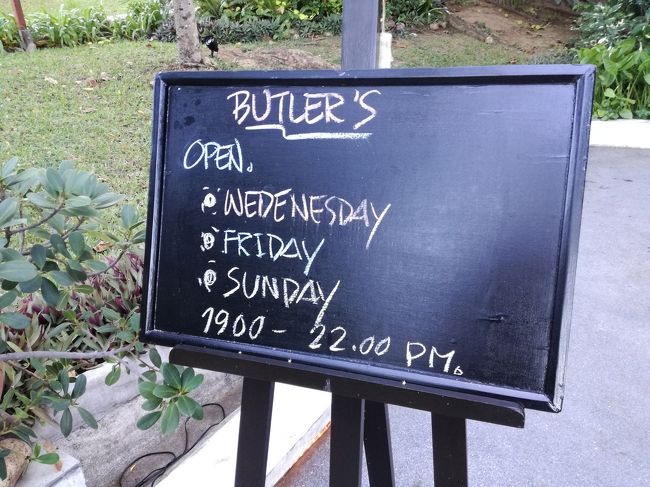 BUTLER'S
OPEN.
WEDENESDAY
FRIDAY
SUNDAY
1900 - 22.00 PM.